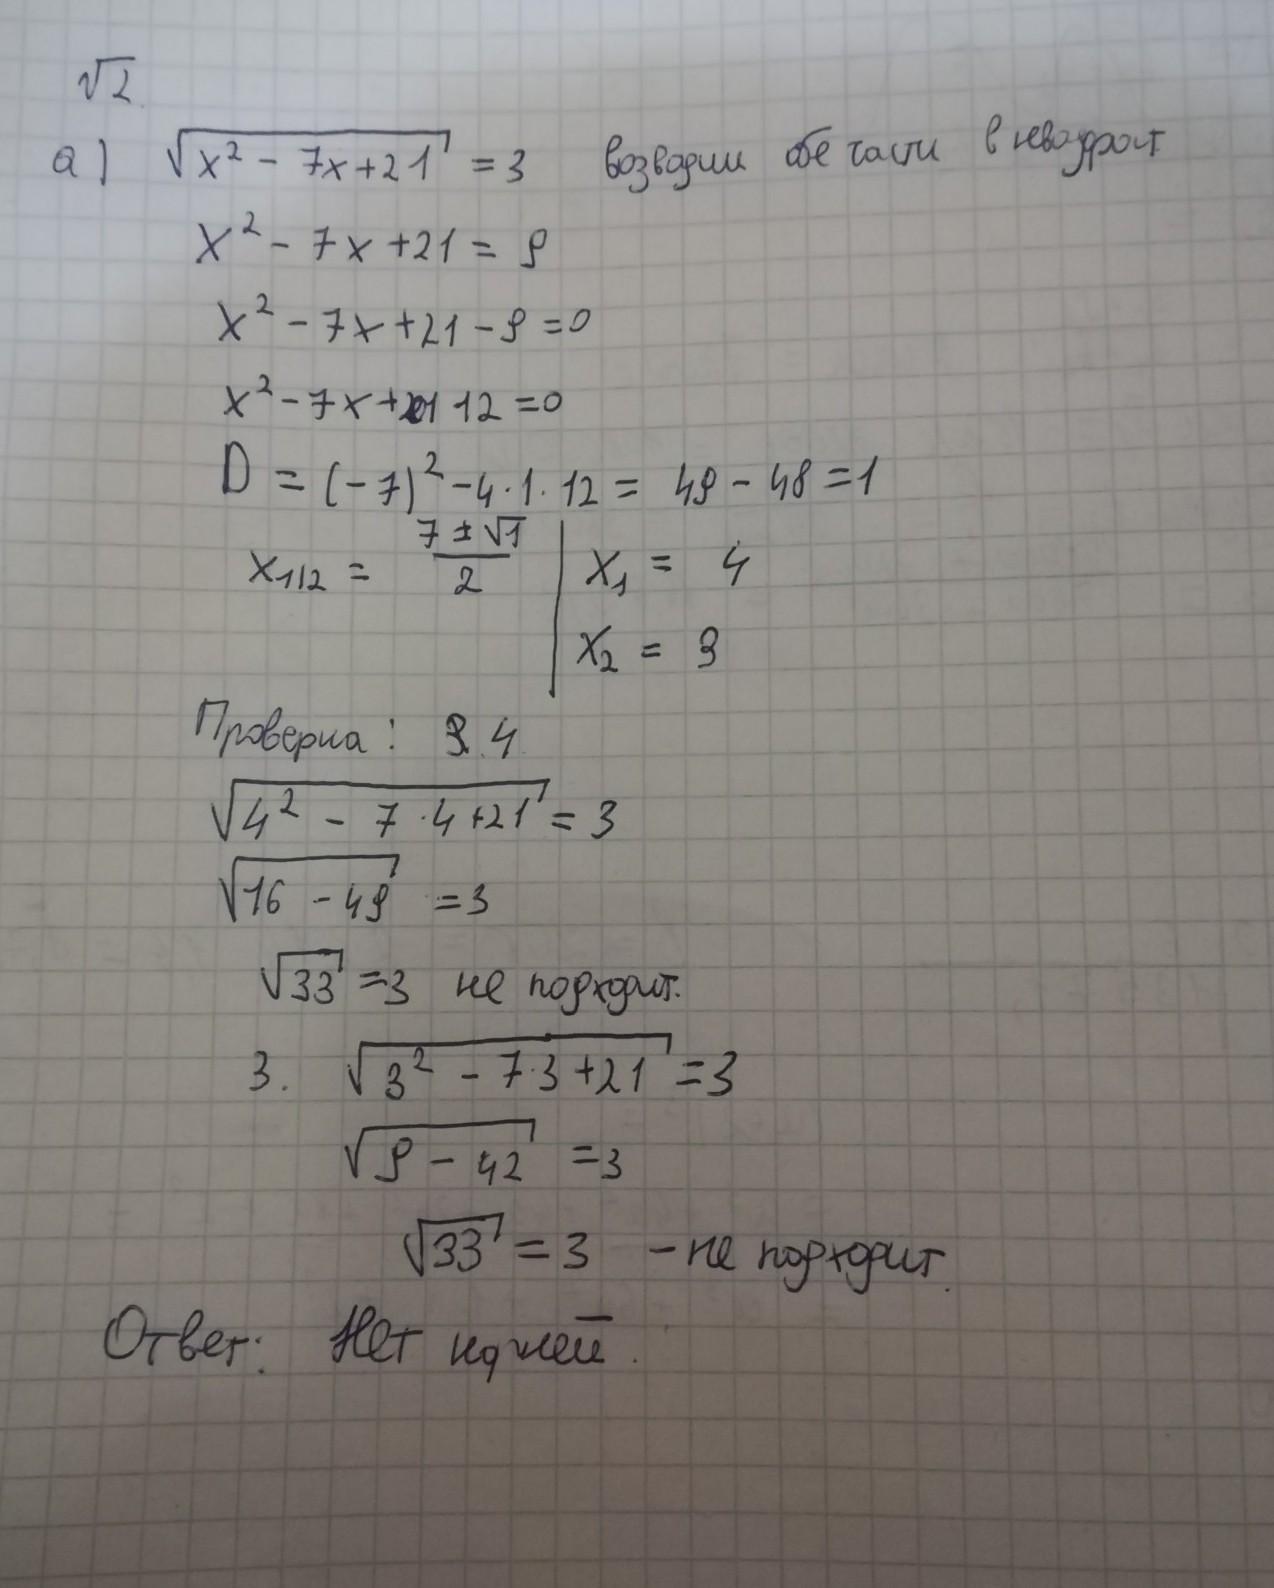 √2.
а) √(x² - 7x + 21) = 3 возводим обе части в квадрат
x² - 7x + 21 = 9
x² - 7x + 21 - 9 = 0
x² - 7x + 12 = 0
D = (-7)² - 4·1·12 = 49 - 48 = 1
x₁,₂ = (7 ± √1)/2 | x₁ = 4
x₂ = 3
Проверка: 4
√(4² - 7·4 + 21) = 3
√(16 - 49) = 3
√33 = 3 не подходит.
3. √(3² - 7·3 + 21) = 3
√(9 - 42) = 3
√33 = 3 - не подходит.
Ответ: Нет корней.